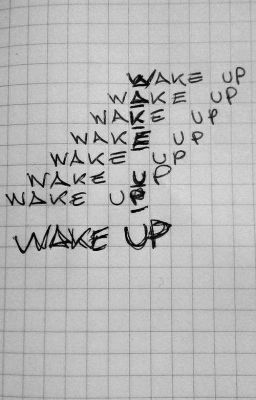 WAKE UP
WAKE UP
WAKE UP
WAKE UP
WAKE UP
WAKE UP
WAKE UP
WAKE UP